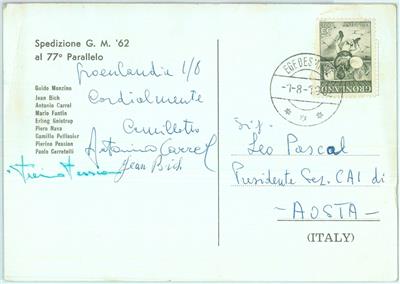 Spedizione G. M. '62
al 77º Parallelo
Guido Monzino
Jean Bich
Antonio Carrel
Mario Fantin
Erling Gnistrup
Piero Nava
Camillo Pellissier
Pierino Pession
Paolo Cerretelli
Groenlandia 1/8
Cordialmente
Camillotto
Antonino Carrel
Jean Bich
Pierino Pession
GRØNLAND
EGEDESM
-1-8-
Sig.
Leo Pascal
Presidente Sez. CAI di
- AOSTA -
(ITALY)